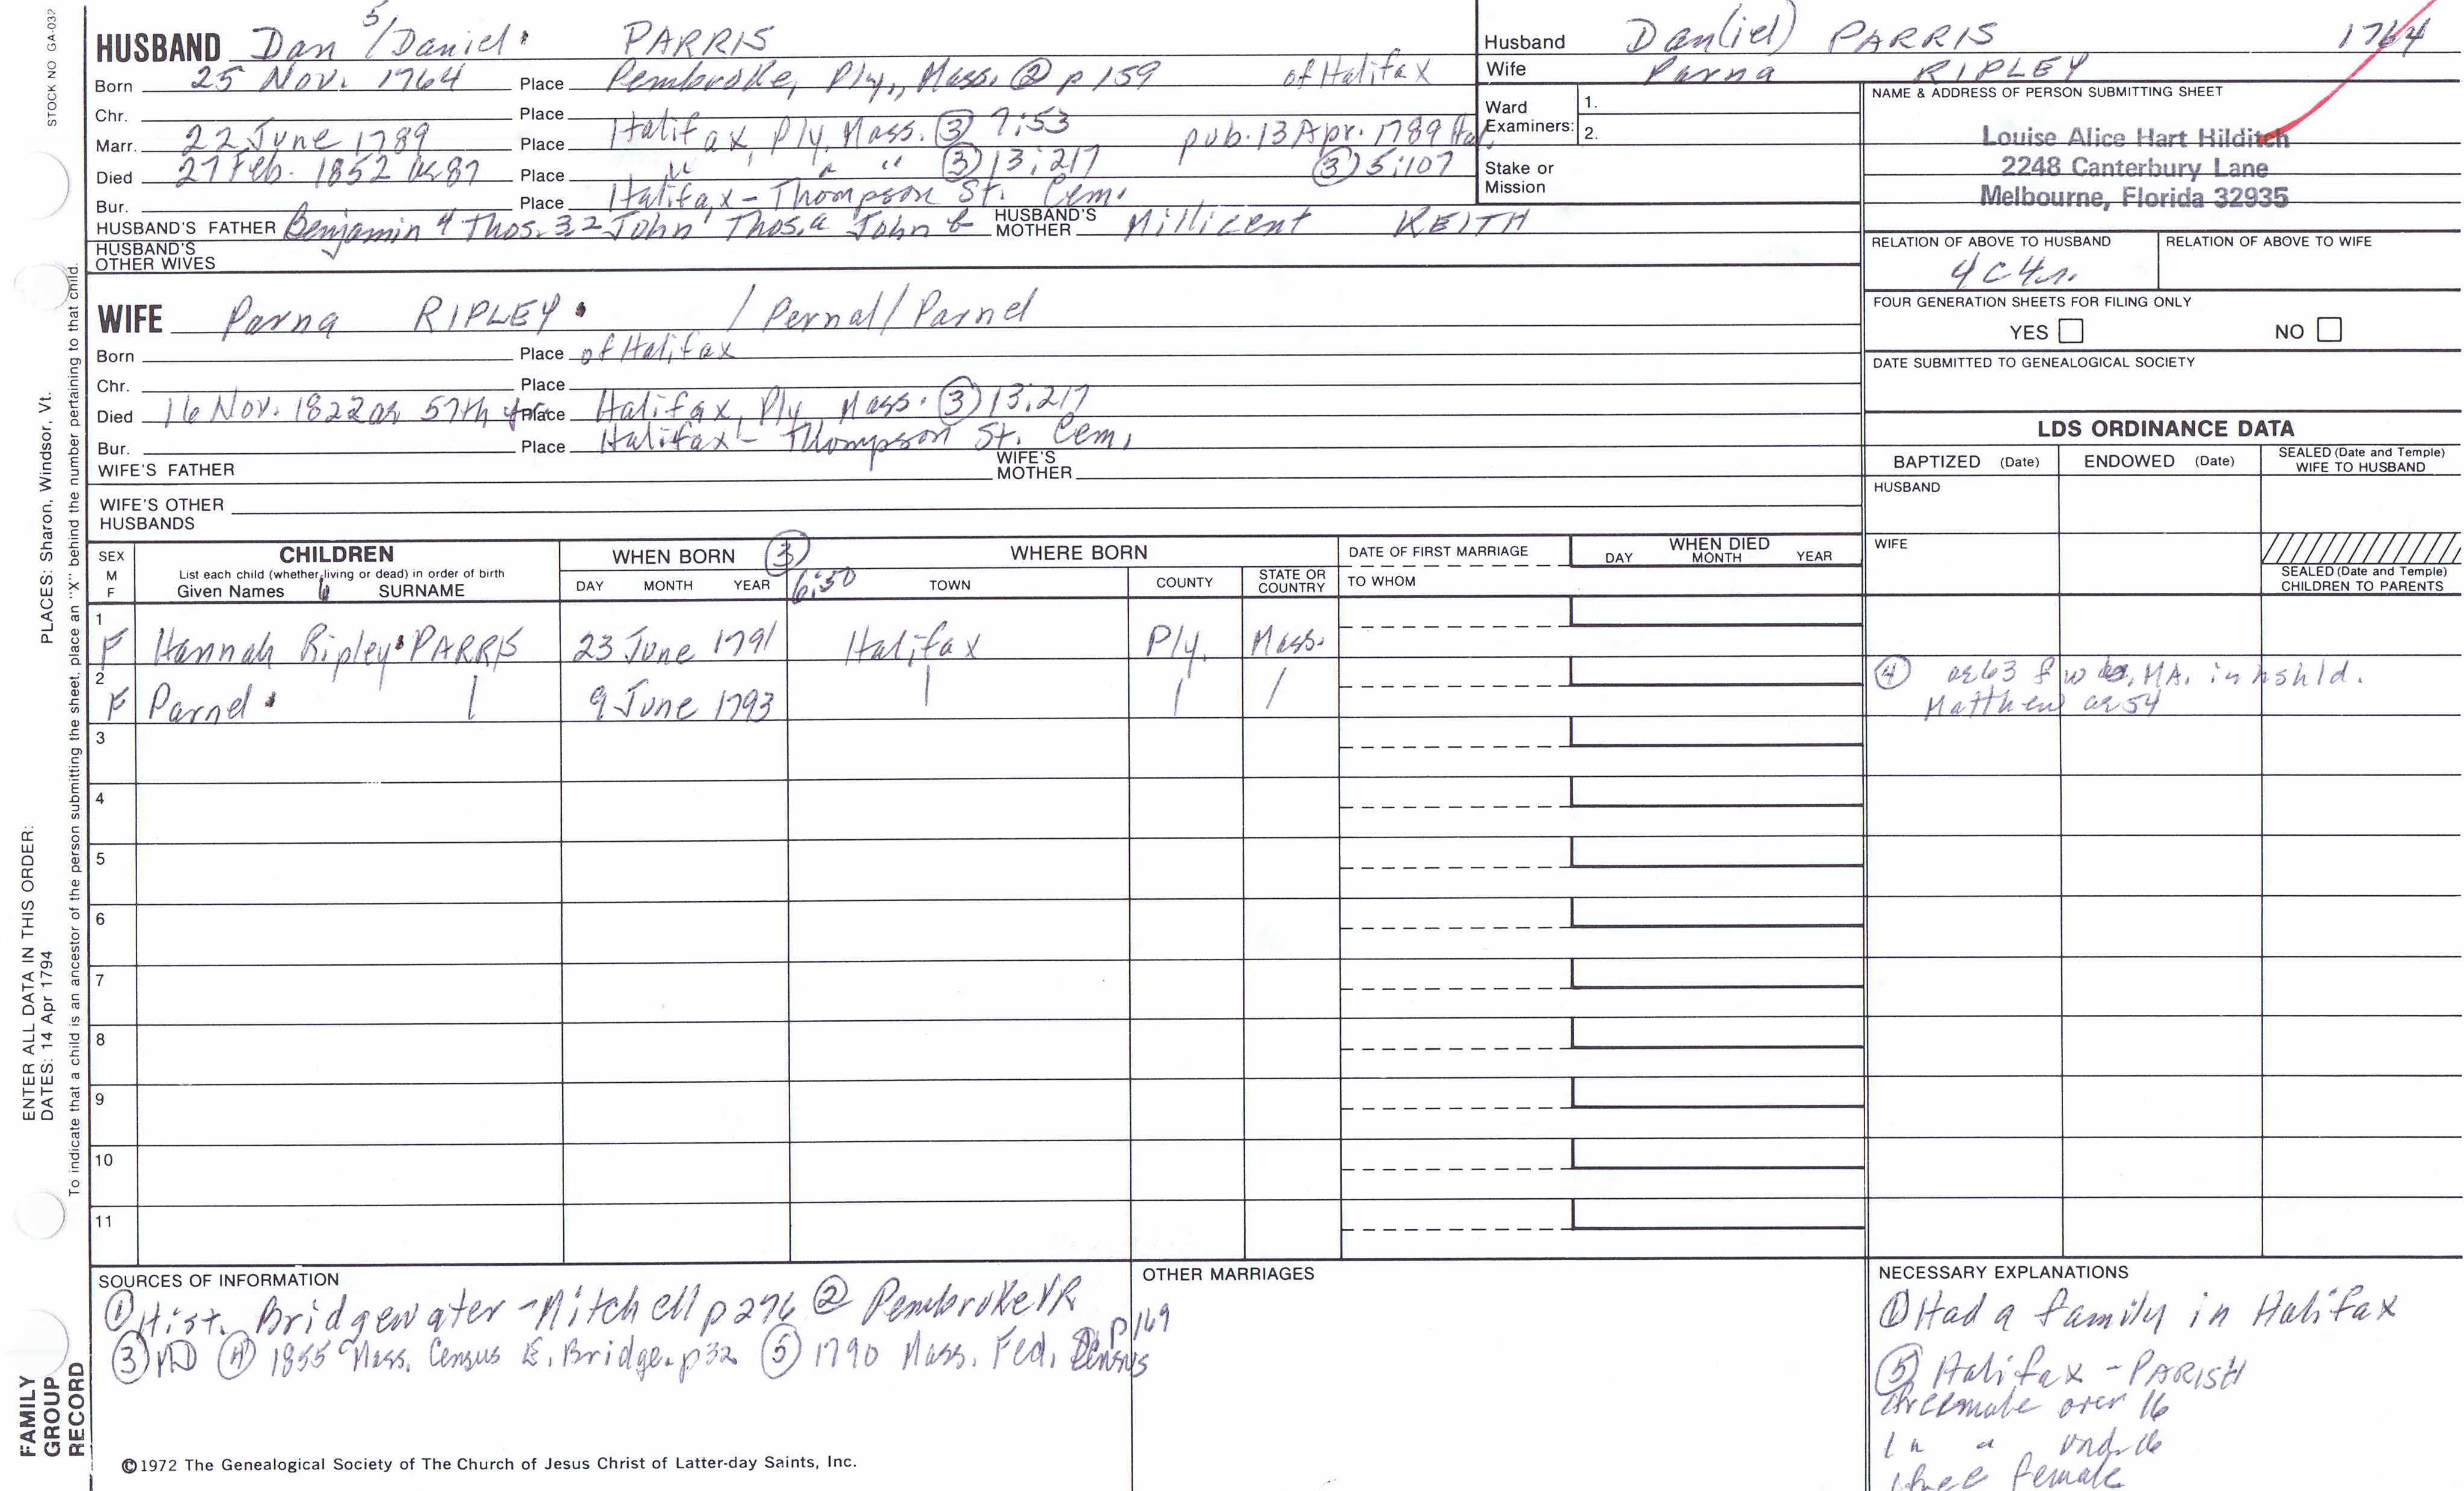 STOCK NO GA-032
HUSBAND Dan 5/Daniel PARRIS
Born 25 Nov. 1764 Place Pembroke, Ply., Mass. ② p 159 of Halifax
Chr. Place
Marr. 22 June 1789 Place Halifax, Ply. Mass. ③ 7:53 pub. 13 Apr. 1789 Hal.
Died 27 Feb. 1852 ae 87 Place " " " ③ 13:217 ③ 5:107
Bur. Place Halifax - Thompson St. Cem.
HUSBAND'S FATHER Benjamin 4 Thos. 3,2 John 1 Thos. a John b HUSBAND'S MOTHER Millicent KEITH
HUSBAND'S OTHER WIVES
Husband Dan(iel) PARRIS 1764
Wife Parna RIPLEY
Ward Examiners: 1.
2.
Stake or Mission
NAME & ADDRESS OF PERSON SUBMITTING SHEET
Louise Alice Hart Hilditch
2248 Canterbury Lane
Melbourne, Florida 32935
RELATION OF ABOVE TO HUSBAND RELATION OF ABOVE TO WIFE
4C4r.
FOUR GENERATION SHEETS FOR FILING ONLY
YES NO
DATE SUBMITTED TO GENEALOGICAL SOCIETY
WIFE Parna RIPLEY / Pernal/Parnel
Born Place of Halifax
Chr. Place
Died 16 Nov. 1822 ae 57th yr Place Halifax, Ply. Mass. ③ 13:217
Bur. Place Halifax - Thompson St. Cem.
WIFE'S FATHER WIFE'S MOTHER
WIFE'S OTHER HUSBANDS
LDS ORDINANCE DATA
BAPTIZED (Date) ENDOWED (Date) SEALED (Date and Temple) WIFE TO HUSBAND
HUSBAND
WIFE
SEALED (Date and Temple) CHILDREN TO PARENTS
SEX M F CHILDREN List each child (whether living or dead) in order of birth Given Names 6 SURNAME
WHEN BORN DAY MONTH YEAR ③ 6:50 WHERE BORN TOWN COUNTY STATE OR COUNTRY
DATE OF FIRST MARRIAGE TO WHOM WHEN DIED DAY MONTH YEAR
1 F Hannah Ripley PARRIS 23 June 1791 Halifax Ply. Mass.
2 F Parnel / 9 June 1793 / / /
④ ae 63 f w MA. in hshld.
Matthew ae 54
3
4
5
6
7
8
9
10
11
SOURCES OF INFORMATION
① Hist. Bridgewater - Mitchell p 276 ② Pembroke VR
③ MD ④ 1855 Mass. Census E. Bridge. p 32 ⑤ 1790 Mass. Fed. Census p 169
OTHER MARRIAGES
NECESSARY EXPLANATIONS
① Had a family in Halifax
⑤ Halifax - PARISH
male over 16
1 " " und. 16
female
©1972 The Genealogical Society of The Church of Jesus Christ of Latter-day Saints, Inc.
FAMILY GROUP RECORD
ENTER ALL DATA IN THIS ORDER:
DATES: 14 Apr 1794 PLACES: Sharon, Windsor, Vt.
To indicate that a child is an ancestor of the person submitting the sheet, place an "X" behind the number pertaining to that child.